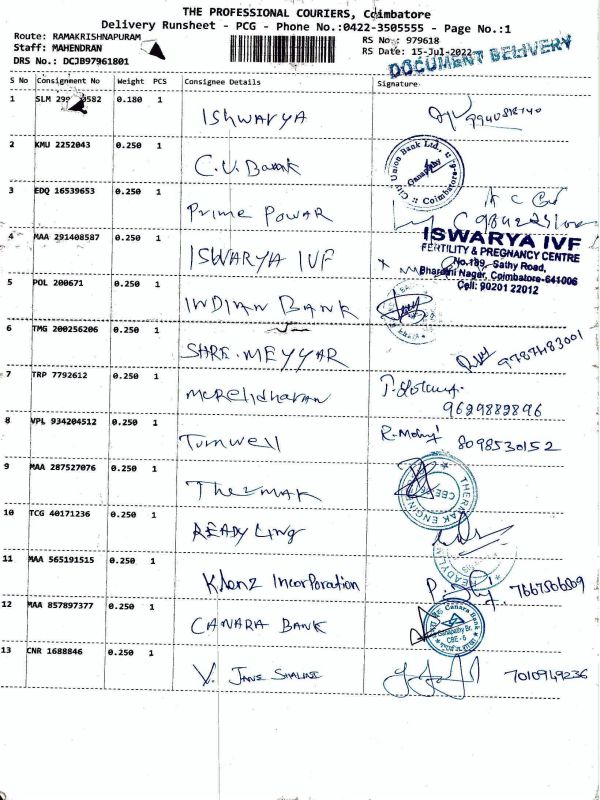 THE PROFESSIONAL COURIERS, Coimbatore
Delivery Runsheet - PCG - Phone No.:0422-3505555 - Page No.:1
Route: RAMAKRISHNAPURAM RS No.: 979618
Staff: MAHENDRAN RS Date: 15-Jul-2022
DRS No.: DCJB97961801 DOCUMENT DELIVERY
S No Consignment No Weight PCS Consignee Details Signature
1 SLM 0.180 1 IShWARYA
2 KMU 2252043 0.250 1 C.U. Bank City Union Bank Ltd., Ganapathy Coimbatore
3 EDQ 16539653 0.250 1 Prime Powar
4 MAA 291408587 0.250 1 ISWARYA IVF
ISWARYA IVF
FERTILITY & PREGNANCY CENTRE
No.189, Sathy Road,
Bharathi Nager, Coimbatore-641006
Cell: 90201 22012
5 POL 200671 0.250 1 INDIAN BANK
6 TMG 200256206 0.250 1 SHRE. MEYYAR 9787483001
7 TRP 7792612 0.250 1 9629882896
8 VPL 934204512 0.250 1 Turnwell R. 8098530152
9 MAA 287527076 0.250 1 Thermak THERMAK ENGINE CBE
10 TCG 40171236 0.250 1 READY Ling
11 MAA 565191515 0.250 1 Klenz Incorporation
12 MAA 857897377 0.250 1 CANARA BANK Canara Bank Ganapathy Br. CBE - 6
13 CNR 1688846 0.250 1 V. 7010949236